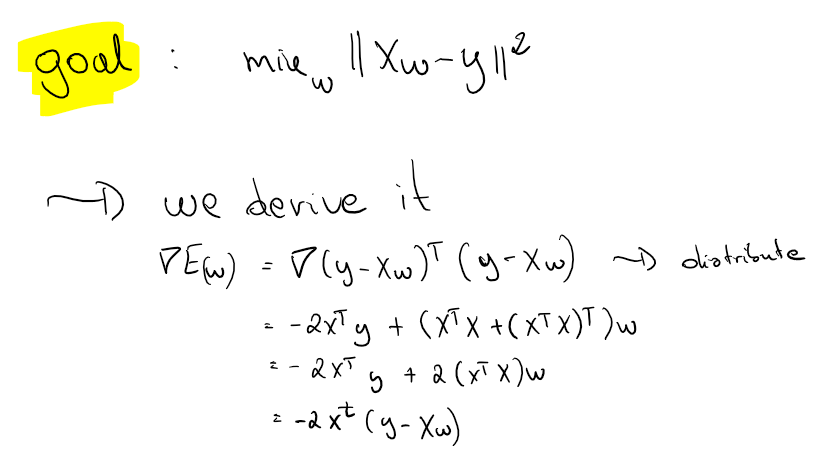 goal : min_w ||Xw-y||²
~> we derive it
∇E(w) = ∇(y-Xw)ᵀ (y-Xw) ~> distribute
= -2xᵀy + (XᵀX + (XᵀX)ᵀ)w
= -2xᵀy + 2(xᵀX)w
= -2xᵗ(y-Xw)